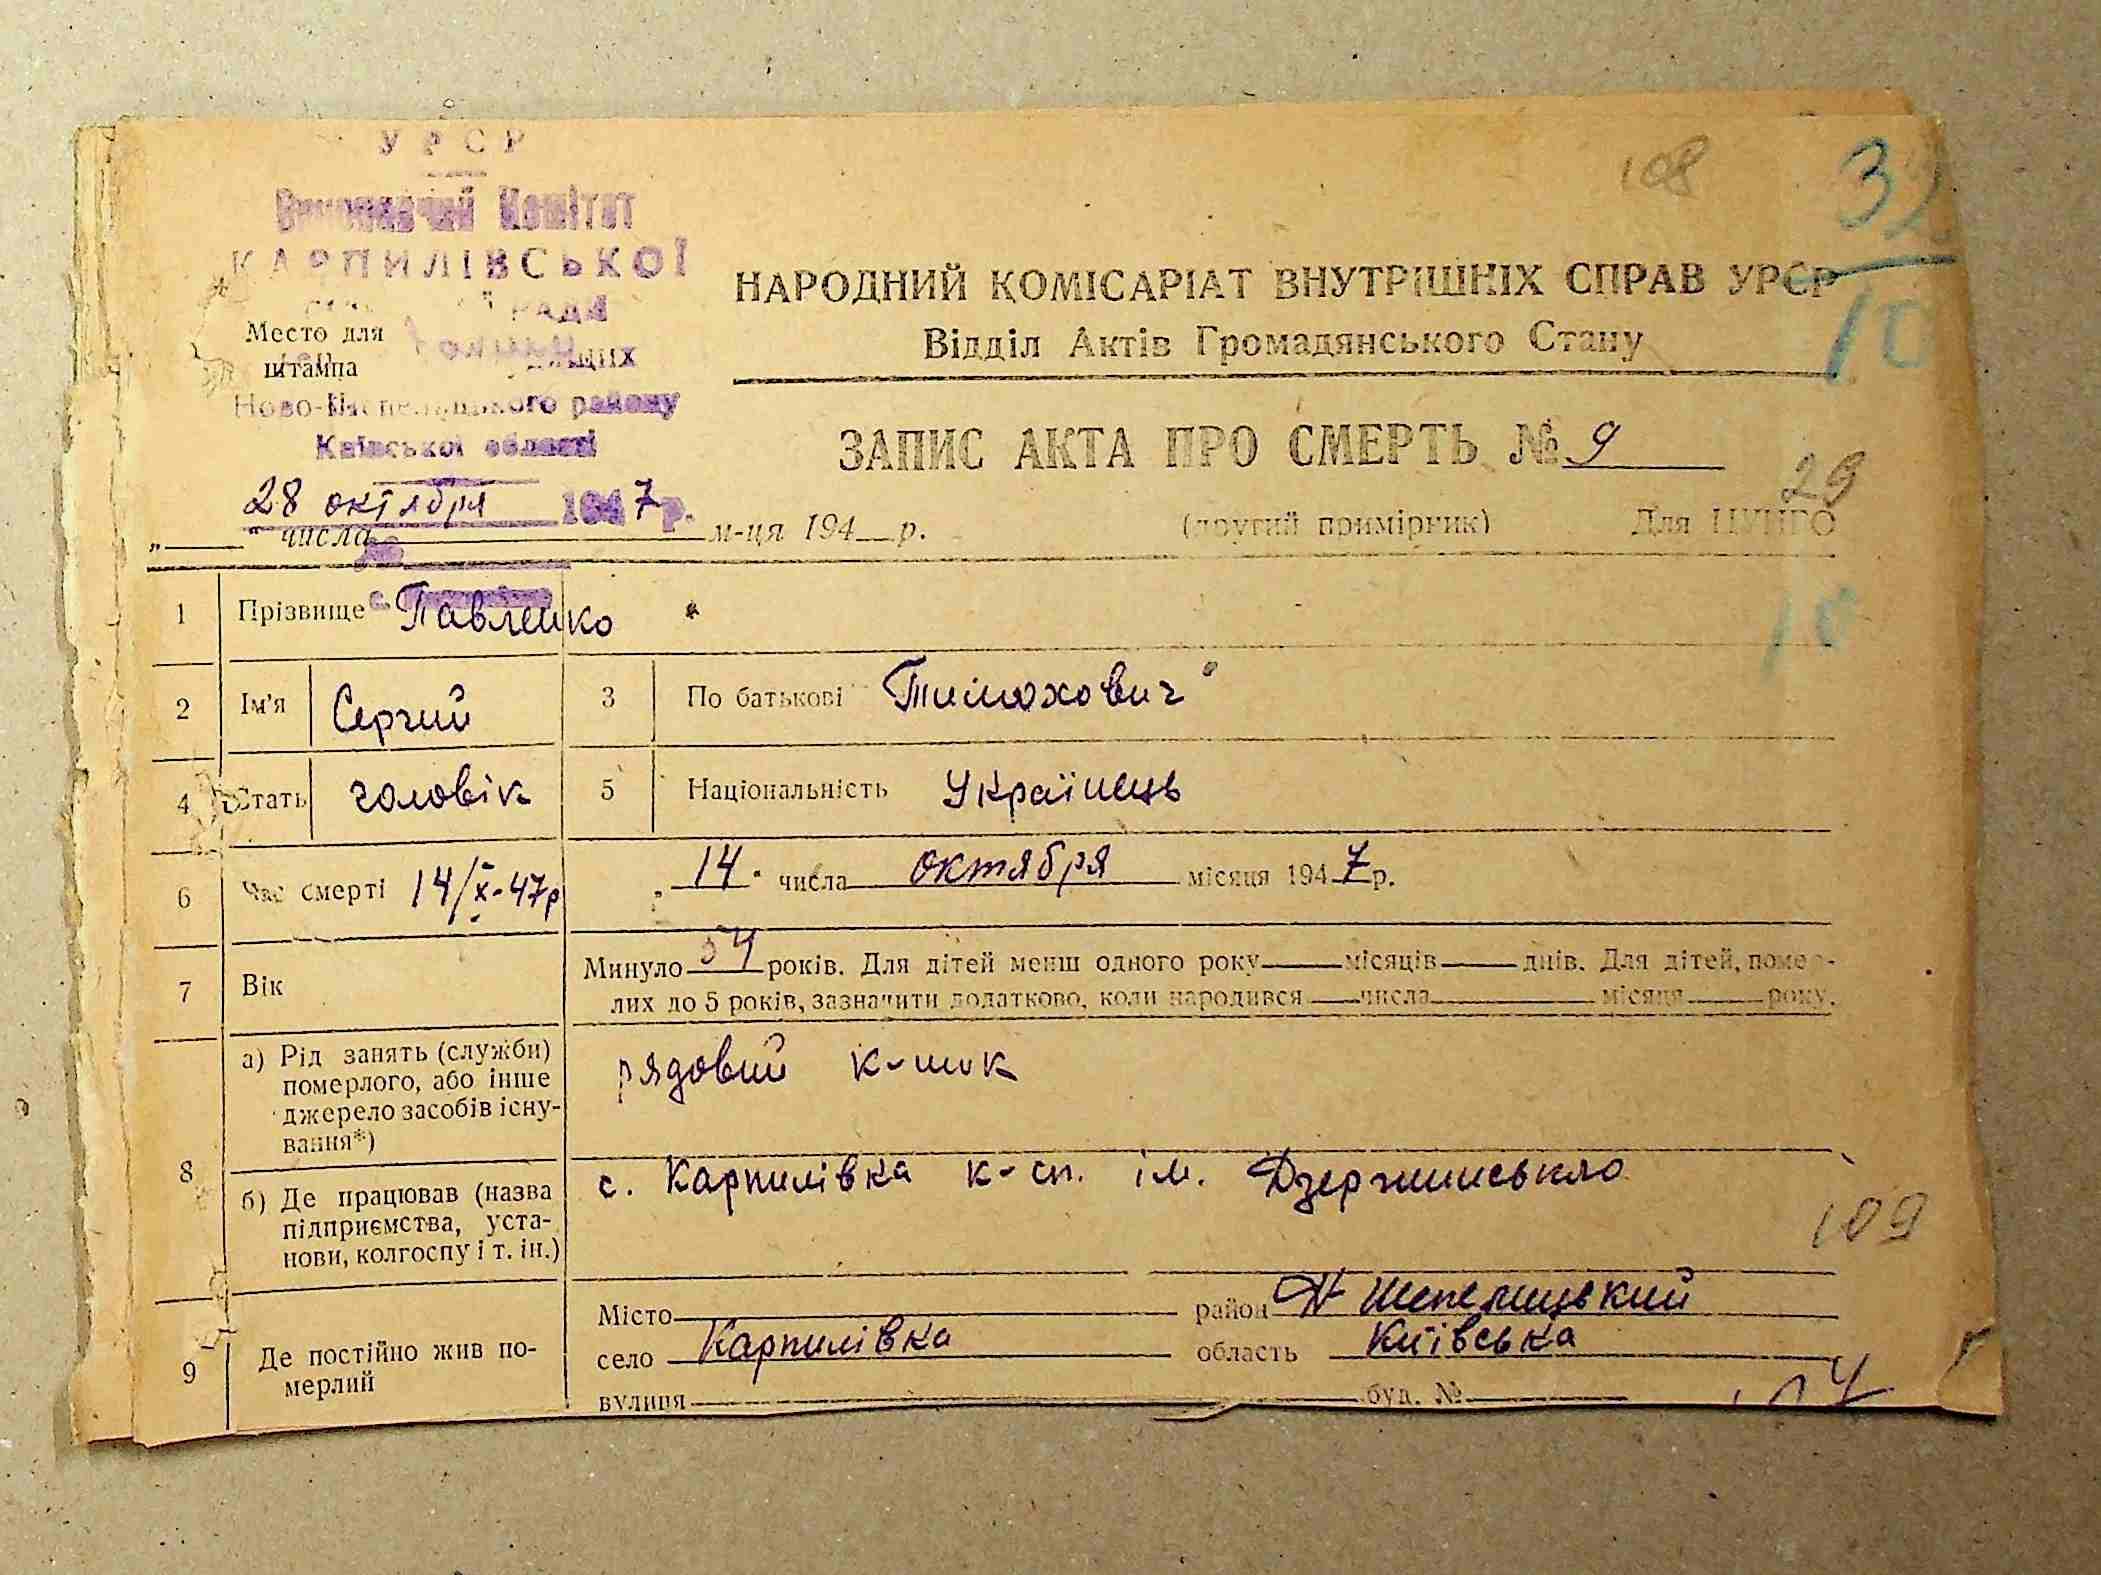 УРСР
Виконавчий Комітет
КАРПИЛІВСЬКОЇ
РАДИ
Место для
штампа
Ново-Шепелицького району
Київської області
28 октября 1947 р.
„ " числа м-ця 194 р.
108
32
10
НАРОДНИЙ КОМІСАРІАТ ВНУТРІШНІХ СПРАВ УРСР
Відділ Актів Громадянського Стану
ЗАПИС АКТА ПРО СМЕРТЬ № 9
29
(другий примірник) Для ЦУНГО
10
1 Прізвище Павленко
2 Ім'я Сергий 3 По батькові Тимохович
4 Стать чоловік 5 Національність Українець
6 Час смерті 14/X-47р „14" числа октября місяця 1947 р.
7 Вік Минуло 54 років. Для дітей менш одного року місяців днів. Для дітей, помер-
лих до 5 років, зазначити додатково, коли народився числа місяця року.
8 а) Рід занять (служби)
померлого, або інше
джерело засобів існу-
вання*)
рядовий к-ник
б) Де працював (назва
підприємства, уста-
нови, колгоспу і т. ін.)
с. Карпилівка к-сп. ім. Дзержинського
109
9 Де постійно жив по-
мерлий
Місто район Н Шепелицький
село Карпилівка область Київська
вулиця буд. №